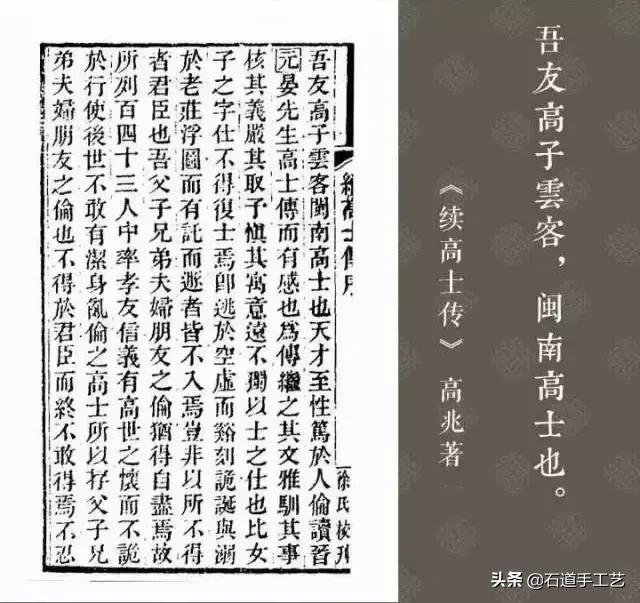 吾友高子雲客，閩南高士也。
《续高士传》高兆著
續高士傳序
徐氏校刊
吾友高子雲客閩南高士也天才至性篤於人倫讀晉
元晏先生高士傳而有感也爲傳繼之其文雅馴其事
核其義嚴其取予慎其寓意遠不獨以士之仕也比女
子之字仕不得復士焉卽逃於空虛而谿刻詭誕與溺
於老莊浮圖而有託而逃者皆不入焉豈非以所不得
者君臣也吾父子兄弟夫婦朋友之倫猶得自盡焉故
所列百四十三人中率孝友信義有高世之懷而不詭
於行使後世不敢有潔身亂倫之高士所以存父子兄
弟夫婦朋友之倫也不得於君臣而終不敢得焉不忍
头条 @石道手工艺